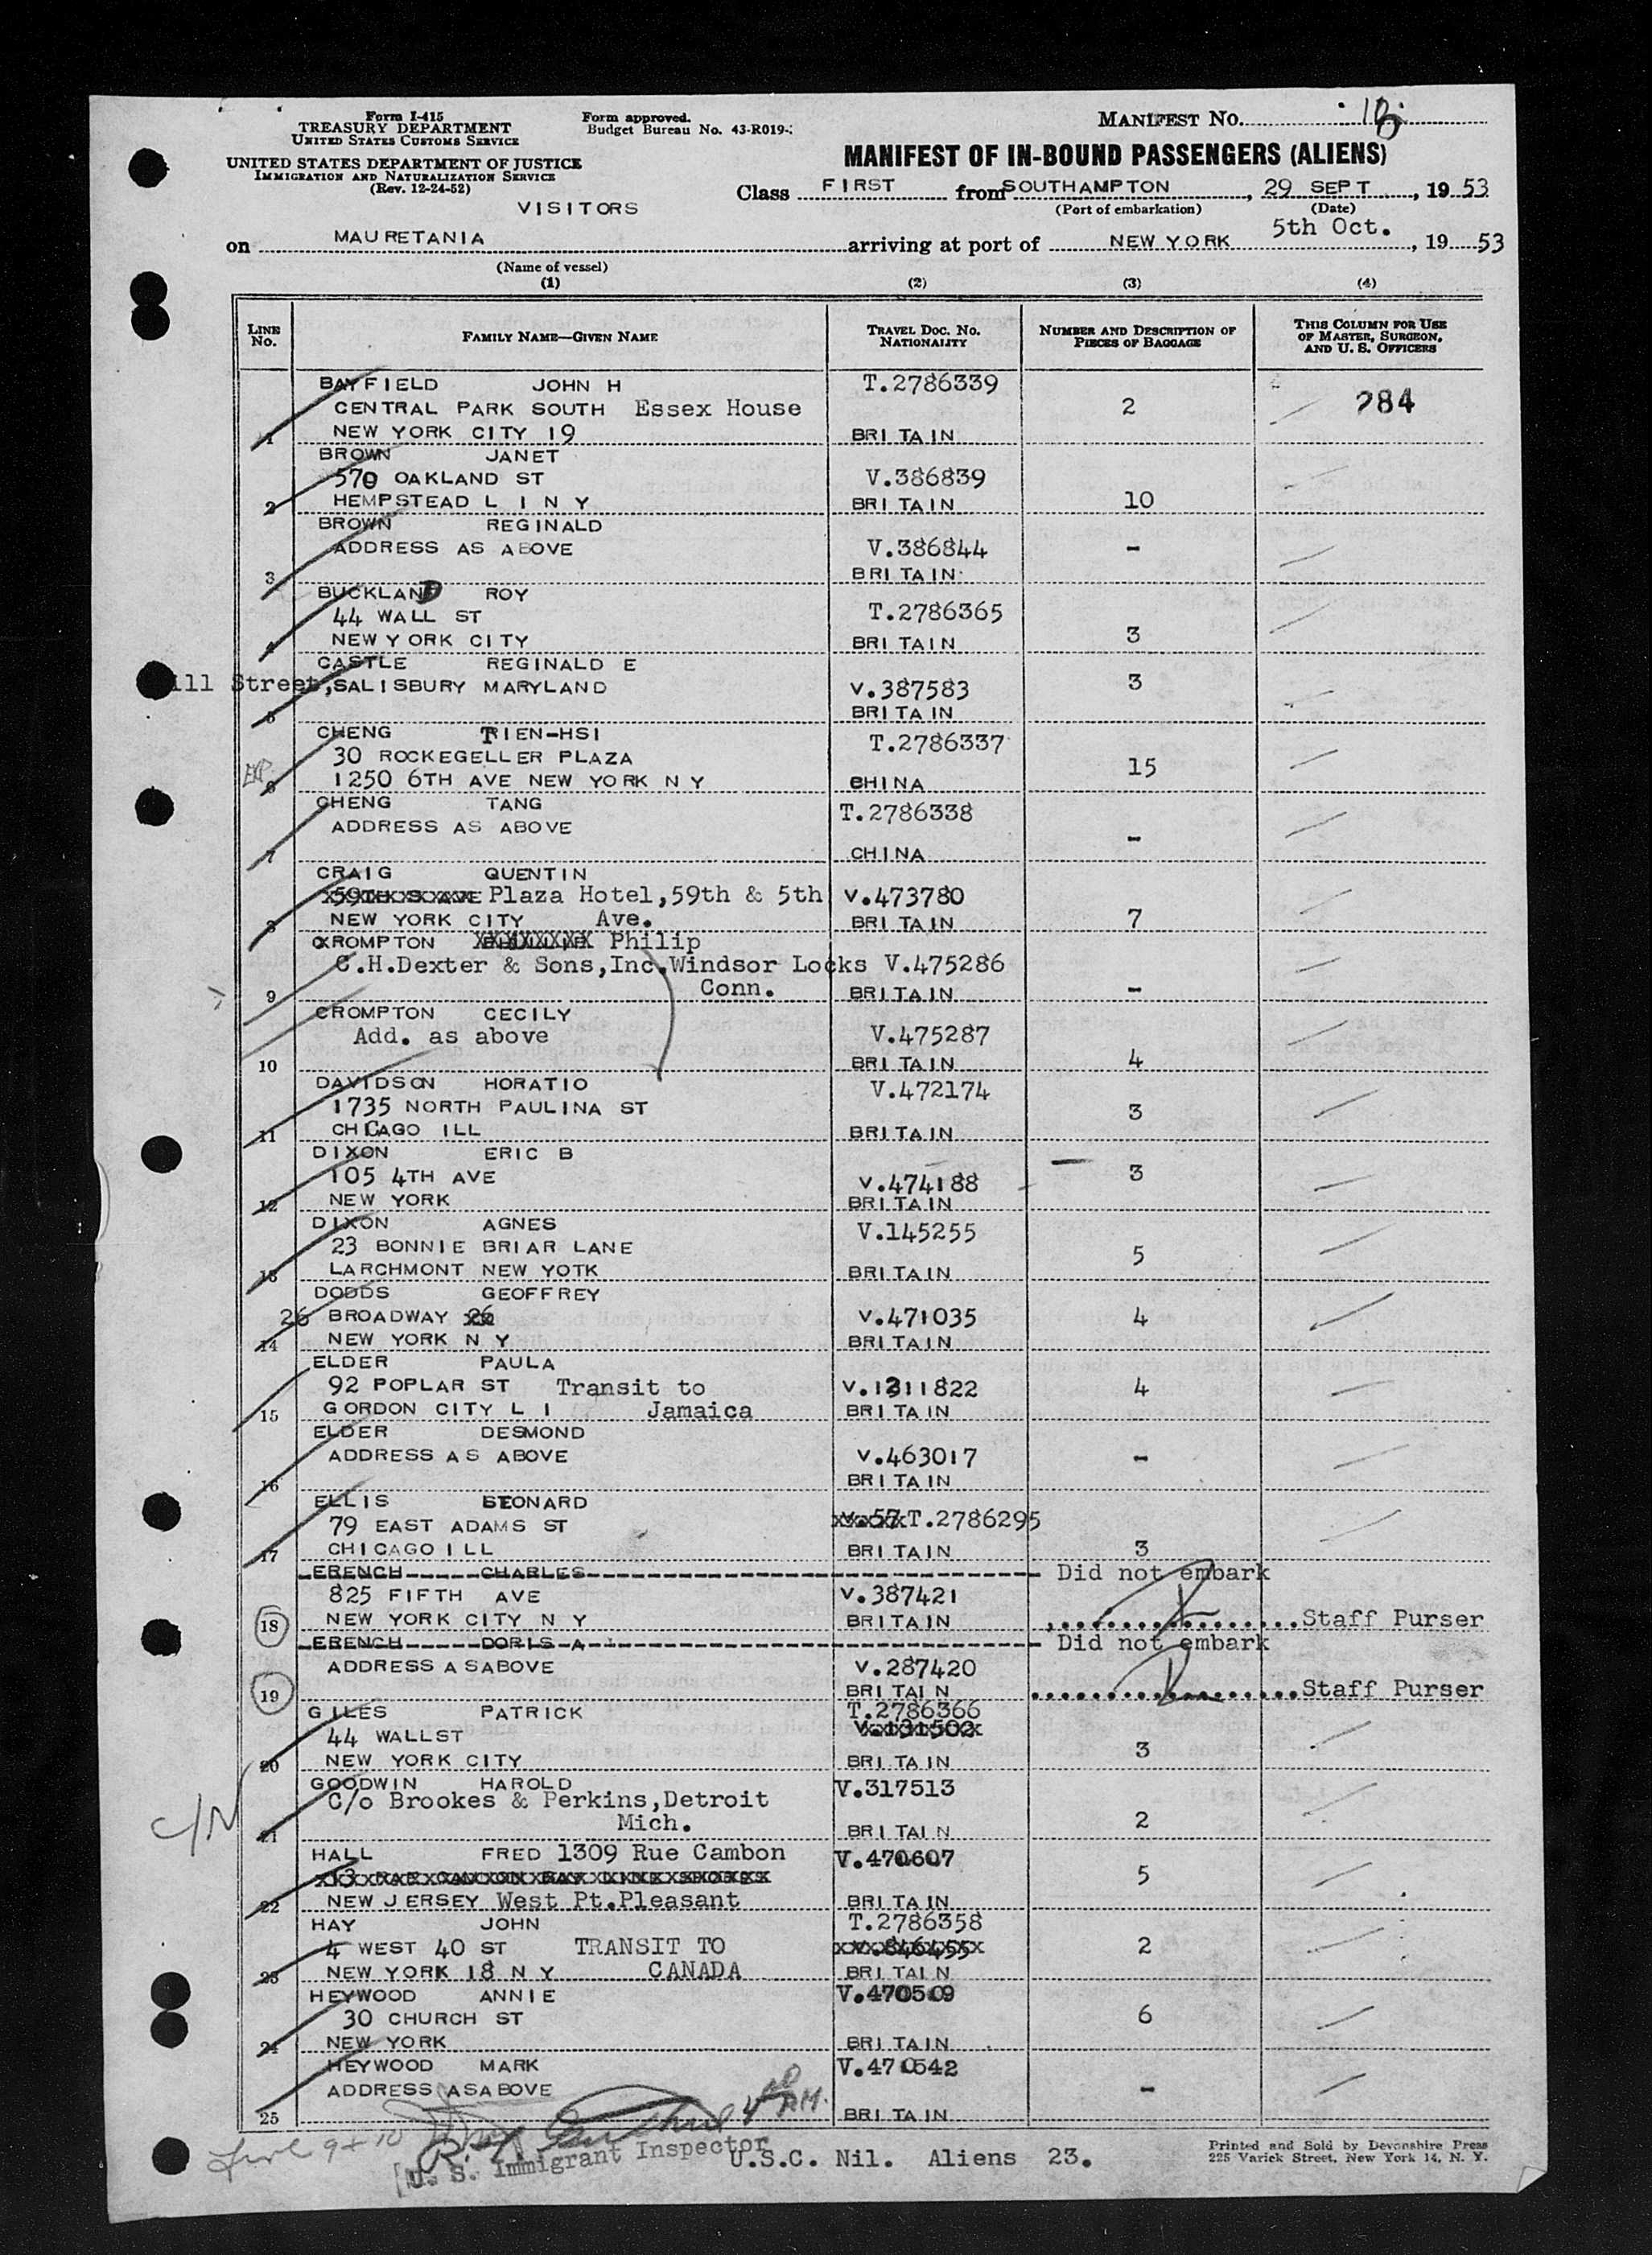 Form I-415
TREASURY DEPARTMENT
UNITED STATES CUSTOMS SERVICE
UNITED STATES DEPARTMENT OF JUSTICE
IMMIGRATION AND NATURALIZATION SERVICE
(Rev. 12-24-52)
Form approved.
Budget Bureau No. 43-R019-
MANIFEST NO.
MANIFEST OF IN-BOUND PASSENGERS (ALIENS)
Class FIRST from SOUTHAMPTON, 29 SEPT, 19 53
(Port of embarkation) (Date)
VISITORS
on MAURETANIA arriving at port of NEW YORK 5th Oct., 19 53
(Name of vessel)
(1) (2) (3) (4)
LINE NO. FAMILY NAME—GIVEN NAME TRAVEL DOC. NO. NATIONALITY NUMBER AND DESCRIPTION OF PIECES OF BAGGAGE THIS COLUMN FOR USE OF MASTER, SURGEON, AND U. S. OFFICERS
BAYFIELD JOHN H T.2786339
CENTRAL PARK SOUTH Essex House 2 284
1 NEW YORK CITY 19 BRITAIN
BROWN JANET
570 OAKLAND ST V.386839
2 HEMPSTEAD L I N Y BRITAIN 10
BROWN REGINALD
ADDRESS AS ABOVE V.386844 -
3 BRITAIN
BUCKLAND ROY
44 WALL ST T.2786365
4 NEW YORK CITY BRITAIN 3
CASTLE REGINALD E
ill Street, SALISBURY MARYLAND V.387583 3
5 BRITAIN
CHENG TIEN-HSI T.2786337
30 ROCKEGELLER PLAZA 15
EXP 6 1250 6TH AVE NEW YORK N Y CHINA
CHENG TANG T.2786338
ADDRESS AS ABOVE -
7 CHINA
CRAIG QUENTIN
Plaza Hotel,59th & 5th V.473780
8 NEW YORK CITY Ave. BRITAIN 7
CROMPTON Philip
C.H.Dexter & Sons,Inc.Windsor Locks V.475286
9 Conn. BRITAIN -
CROMPTON CECILY
Add. as above V.475287
10 BRITAIN 4
DAVIDSON HORATIO V.472174
1735 NORTH PAULINA ST 3
11 CHICAGO ILL BRITAIN
DIXON ERIC B
105 4TH AVE V.474188 3
12 NEW YORK BRITAIN
DIXON AGNES V.145255
23 BONNIE BRIAR LANE 5
13 LARCHMONT NEW YOTK BRITAIN
DODDS GEOFFREY
26 BROADWAY 26 V.471035 4
14 NEW YORK N Y BRITAIN
ELDER PAULA
92 POPLAR ST Transit to V.1311822 4
15 GORDON CITY L I Jamaica BRITAIN
ELDER DESMOND
ADDRESS AS ABOVE V.463017 -
16 BRITAIN
ELLIS LEONARD
79 EAST ADAMS ST T.2786295
17 CHICAGO ILL BRITAIN 3
FRENCH CHARLES Did not embark
825 FIFTH AVE V.387421
18 NEW YORK CITY N Y BRITAIN Staff Purser
FRENCH DORIS A Did not embark
ADDRESS ASABOVE V.287420
19 BRITAIN Staff Purser
GILES PATRICK T.2786366
44 WALLST V.131502
20 NEW YORK CITY BRITAIN 3
GOODWIN HAROLD V.317513
C/o Brookes & Perkins,Detroit
C/N 21 Mich. BRITAIN 2
HALL FRED 1309 Rue Cambon V.470607
5
22 NEW JERSEY West Pt.Pleasant BRITAIN
HAY JOHN T.2786358
4 WEST 40 ST TRANSIT TO V.846455 2
23 NEW YORK 18 N Y CANADA BRITAIN
HEYWOOD ANNIE V.470509
30 CHURCH ST 6
24 NEW YORK BRITAIN
HEYWOOD MARK V.470542
ADDRESS ASABOVE -
25 BRITAIN
Line 9+10
U. S. Immigrant Inspector
U.S.C. Nil. Aliens 23.
Printed and Sold by Devonshire Press
225 Varick Street, New York 14, N. Y.